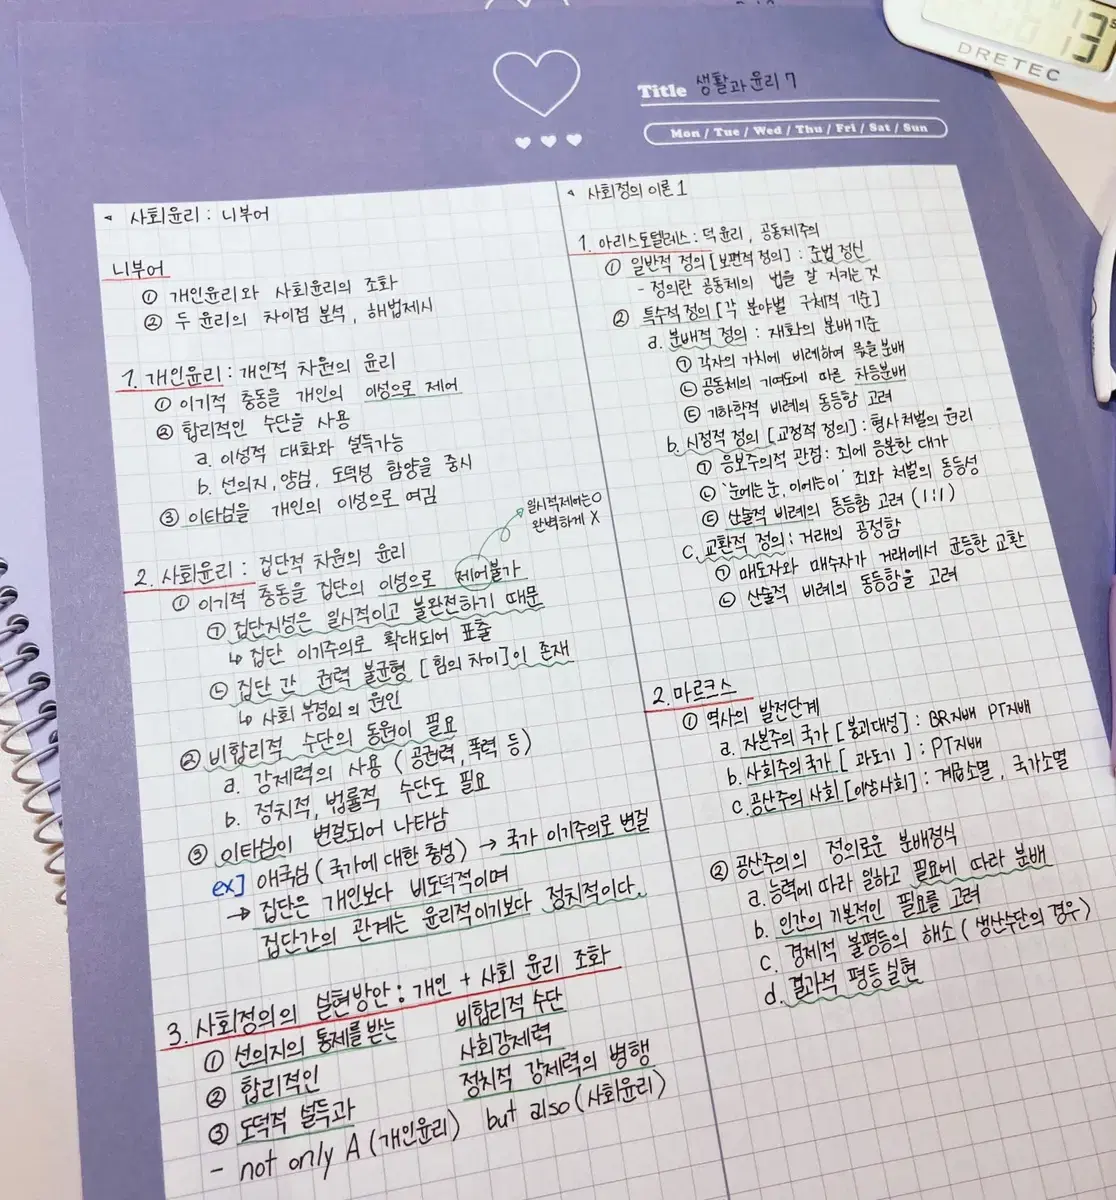 Title 생활과 윤리 7
Mon / Tue / Wed / Thu / Fri / Sat / Sun
DRETEC
사회윤리 : 니부어
니부어
① 개인윤리와 사회윤리의 조화
② 두 윤리의 차이점 분석, 해법제시
1. 개인윤리 : 개인적 차원의 윤리
① 이기적 충동을 개인의 이성으로 제어
② 합리적인 수단을 사용
a. 이성적 대화와 설득가능
b. 선의지, 양심, 도덕성 함양을 중시
③ 이타심을 개인의 이성으로 여김
일시적제어는O
완벽하게 X
2. 사회윤리 : 집단적 차원의 윤리
① 이기적 충동을 집단의 이성으로 제어불가
㉠ 집단지성은 일시적이고 불완전하기 때문
↳ 집단 이기주의로 확대되어 표출
㉡ 집단 간 권력 불균형 [힘의 차이]이 존재
↳ 사회 부정의의 원인
② 비합리적 수단의 동원이 필요
a. 강제력의 사용 (공권력, 폭력 등)
b. 정치적, 법률적 수단도 필요
③ 이타심이 변절되어 나타남
ex] 애국심 (국가에 대한 충성) → 국가 이기주의로 변절
→ 집단은 개인보다 비도덕적이며
집단간의 관계는 윤리적이기보다 정치적이다.
3. 사회정의의 실현방안 : 개인 + 사회 윤리 조화
① 선의지의 통제를 받는 비합리적 수단
② 합리적인 사회강제력
③ 도덕적 설득과 정치적 강제력의 병행
- not only A (개인윤리) but also (사회윤리)
사회정의 이론 1
1. 아리스토텔레스 : 덕 윤리, 공동체주의
① 일반적 정의 [보편적 정의] : 준법 정신
- 정의란 공동체의 법을 잘 지키는 것
② 특수적 정의 [각 분야별 구체적 기준]
a. 분배적 정의 : 재화의 분배기준
㉠ 각자의 가치에 비례하여 몫을 분배
㉡ 공동체의 기여도에 따른 차등분배
㉢ 기하학적 비례의 동등함 고려
b. 시정적 정의 [교정적 정의] : 형사처벌의 윤리
㉠ 응보주의적 관점 : 죄에 응분한 대가
㉡ '눈에는 눈, 이에는 이' 죄와 처벌의 동등성
㉢ 산술적 비례의 동등함 고려 (1:1)
c. 교환적 정의 : 거래의 공정함
㉠ 매도자와 매수자가 거래에서 균등한 교환
㉡ 산술적 비례의 동등함을 고려
2. 마르크스
① 역사의 발전단계
a. 자본주의 국가 [붕괴대성] : BR지배 PT지배
b. 사회주의 국가 [과도기] : PT지배
c. 공산주의 사회 [이상사회] : 계급소멸, 국가소멸
② 공산주의의 정의로운 분배정식
a. 능력에 따라 일하고 필요에 따라 분배
b. 인간의 기본적인 필요를 고려
c. 경제적 불평등의 해소 (생산수단의 경우)
d. 결과적 평등 실현